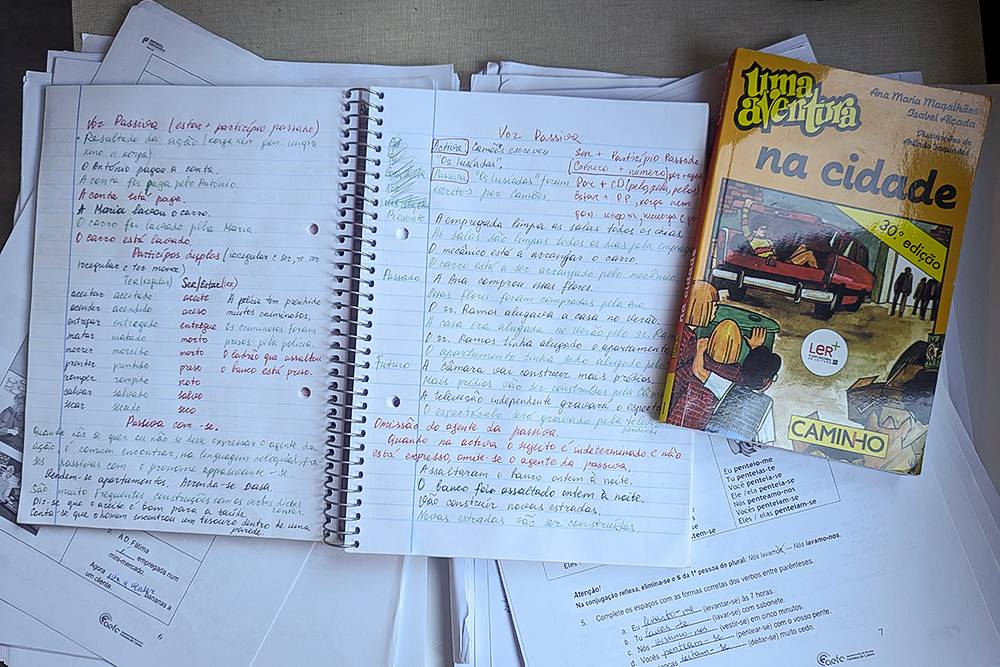 Voz Passiva (estar + particípio passado)
- Resultado da ação
O António pagou a conta.
A conta foi paga pelo António.
A conta está paga.
A Maria lavou o carro.
O carro foi lavado pela Maria
O carro está lavado.
Particípios duplos (irregular c ser,
irregular c ter
Ter (regular) Ser/Estar (irr)
aceitar aceitado aceite A polícia tem prendido
acender acendido aceso muitos criminosos,
entregar entregado entregue Os criminosos foram
matar matado morto presos pela polícia.
morrer morrido morto O ladrão que assaltou
prender prendido preso o banco está preso.
romper rompido roto
salvar salvado salvo
secar secado seco
Passiva com -se.
Quando não se quer ou não se deve expressar o agente da
ação, é comum encontrar, na linguagem coloquial, fra-
ses passivas com o pronome apassivante -se.
Vendem-se apartamentos. Arrenda-se casa.
São muito frequentes construções com os verbos dizer,
contar.
Diz-se que o azeite é bom para a saúde.
Conta-se que o homem encontrou um tesouro dentro de uma
parede.
Voz Passiva
Activa Camões escreveu
"Os Lusíadas",
Passiva "Os Lusíadas" foram
escritos por Camões.
Ser + Particípio Passado
(Género + número)
Por + CD (pelo, pela, pelos)
Estar + P.P.,
Presente
A empregada limpa as salas todos os dias
As salas são limpas todos os dias pela
O mecânico está a arranjar o carro.
O carro está a ser arranjado pelo mecânico
Passado
A Ana comprou estas flores.
Estas flores foram compradas pela Ana.
O sr. Ramos alugava a casa no verão.
A casa era alugada no verão pelo sr. Ramos
O sr. Ramos tinha alugado o apartamento
O apartamento tinha sido alugado pelo
Futuro
A câmara vai construir mais prédios.
Mais prédios vão ser construídos pela
A televisão independente gravará o
O espectáculo será gravado pela
Omissão do agente da passiva.
Quando na activa o sujeito é indeterminado e não
está expresso, omite-se o agente da passiva.
Assaltaram o banco ontem à noite.
O banco foi assaltado ontem à noite.
Vão construir novas estradas,
Novas estradas vão ser construídas
uma
aventura
Ana Maria Magalhães
Isabel Alçada
Ilustrações de
Arlindo Fagundes
na cidade
30.ª edição
LeR+
CAMINHO
Eu penteio-me
Tu penteias-te
Você penteia-se
Ele / ela penteia-se
Nós penteamo-nos
Vocês penteiam-se
Eles / elas penteiam-se
Eles
Atenção!
Na conjugação reflexa, elimina-se o s da 1ª pessoa do plural: Nós lavamos — Nós lavamo-nos.
5. Complete os espaços com as formas corretas dos verbos entre parênteses.
a. Eu levanto-me (levantar-se) às 7 horas.
b. Tu lavas-te (lavar-se) com sabonete.
c. Nós (vestir-se) em cinco minutos.
d. Vocês penteiam-se (pentear-se) com o vosso pente.
(deitar-se) muito cedo.
7
aefc
A D. Fátima
empregada num
mini-mercado.
Agora
bananas a
um cliente.
6
aefc